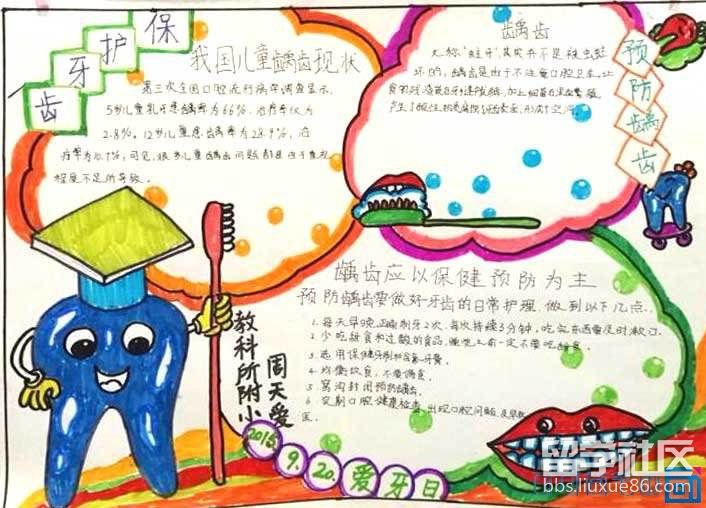 保
护
牙
齿
我国儿童龋齿现状
第三次全国口腔流行病学调查显示,
5岁儿童乳牙患龋率为66%,治疗率仅为
2.8%。12岁儿童患龋率为28.9%,治
疗率为10.7%,可见,很多儿童龋齿问题都是由于重视
程度不足所导致。
龋齿
又称"蛀牙",其实并不是被虫蛀
坏的,龋齿是由于不注重口腔卫生,让
预
防
龋
齿
龋齿应以保健预防为主
预防龋齿要做好牙齿的日常护理,做到以下几点.
1. 每天早晚正确刷牙2次,每次持续3分钟,吃完东西要及时漱口.
2. 少吃甜食和过酸的食品,睡觉之前一定不要吃甜食.
3. 选用保健牙刷和含氟牙膏.
4. 均衡饮食,不要偏食.
5. 窝沟封闭预防龋齿.
6. 定期口腔健康检查,出现口腔问题及早就
医.
教科所附小
周天爱
2015.
9.20.爱牙日
留学社区
bbs.liuxue86.com